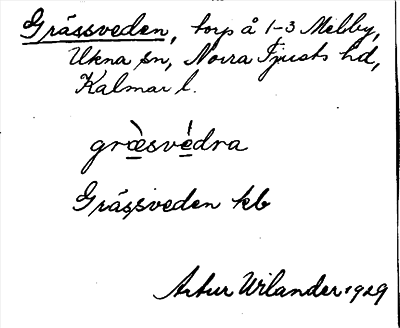 Grässveden, torp å 1-3 Mebby,
Ukna sn, Norra Tjusts hd,
Kalmar l.
græ̀své̱dra
Grässveden kb
Artur Wilander 1929